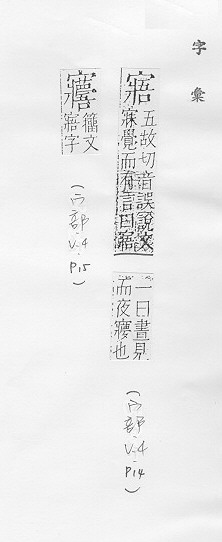 字彙
寤 五故切音誤說文
寐覺而有言曰寤
一曰晝見
而夜寤也
(宀部.V.4.P14)
籀文
寤字
(宀部.V.4.P15)